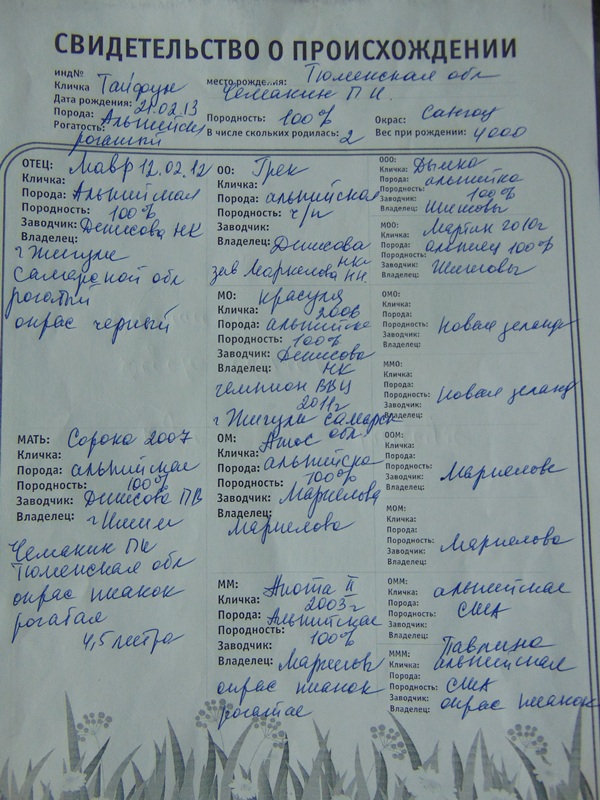 СВИДЕТЕЛЬСТВО О ПРОИСХОЖДЕНИИ
инд№
Кличка Тайфун место рождения: Тюменская обл
Чемакин П И.
Дата рождения: 21.02.13
Порода: Альпийск Породность: 100% Окрас:
Рогатость: рогатый В числе скольких родилась: 2 Вес при рождении: 4000
ОТЕЦ: Мавр 12.02.12
Кличка:
Порода: Альпийская
Породность: 100%
Заводчик: Денисова НК
Владелец:
г Жигули
Самарской обл
рогатый
окрас черный
ОО: Грек
Кличка:
Порода: альпийская
Породность: ч/п
Заводчик:
Владелец: Денисова
НК
ООО: Дымка
Кличка: альпийка
Порода:
Породность: 100%
Заводчик:
Владелец: Шишовы
МОО: Мартин 2010г
Кличка:
Порода: альпиец 100%
Породность:
Заводчик: Шишовы
Владелец:
МО: Красуля
Кличка: 2006
Порода: альпийска
Породность: 100%
Заводчик: Денисова
Владелец: НК
чемпион ВВЦ
2011г
г Жигули Самарск
обл
ОМО:
Кличка:
Порода:
Породность: Новая Зеланд
Заводчик:
Владелец:
ММО:
Кличка:
Порода:
Породность: Новая Зеланд
Заводчик:
Владелец:
МАТЬ: Сорока 2007
Кличка:
Порода: альпийская
Породность: 100%
Заводчик: Денисова ПВ
Владелец: г Ишим
Чемакин ПИ
Тюменская обл
окрас пианок
рогатая
4,5 литра
ОМ: Атос
Кличка:
Порода: альпийска
Породность: 100%
Заводчик: Маркелова
Владелец:
Маркелова
ООМ:
Кличка:
Порода:
Породность: Маркелова
Заводчик:
Владелец:
МОМ:
Кличка:
Порода:
Породность: Маркелова
Заводчик:
Владелец:
ММ: Анюта II
Кличка: 2003г
Порода: Альпийская
Породность: 100%
Заводчик:
Владелец: Маркелов
окрас пианок
рогатая
ОММ: альпийская
Кличка:
Порода:
Породность: США
Заводчик:
Владелец:
МММ: Павлина
Кличка: альпийская
Порода:
Породность: США
Заводчик:
Владелец: окрас пианок